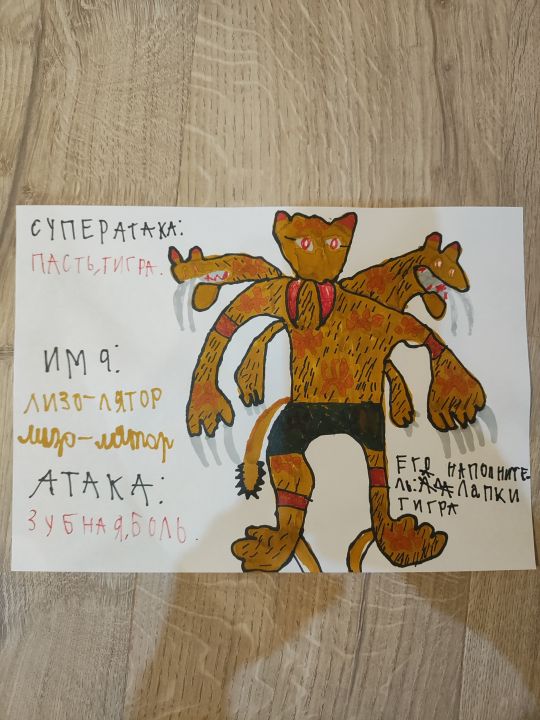 СУПЕРАТАКА:
ПАСТЬ,ТИГРА.
ИМЯ:
ЛИЗО-ЛЯТОР
лизо-лятор
АТАКА:
ЗУБНАЯ,БОЛЬ.
ЕГО НАПОЛНИТЕ-
ЛЬ: ЛАПКИ
ТИГРА